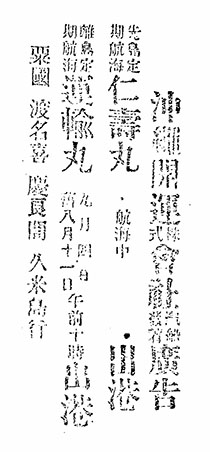 沖繩開運株式會社汽船發着廣告
先島定期航海 仁壽丸 ・航海中 ・出港
離島定期航海 運輸丸 九月四日 舊八月十一日 午前十時 出港
粟國 渡名喜 慶良間 久米島行